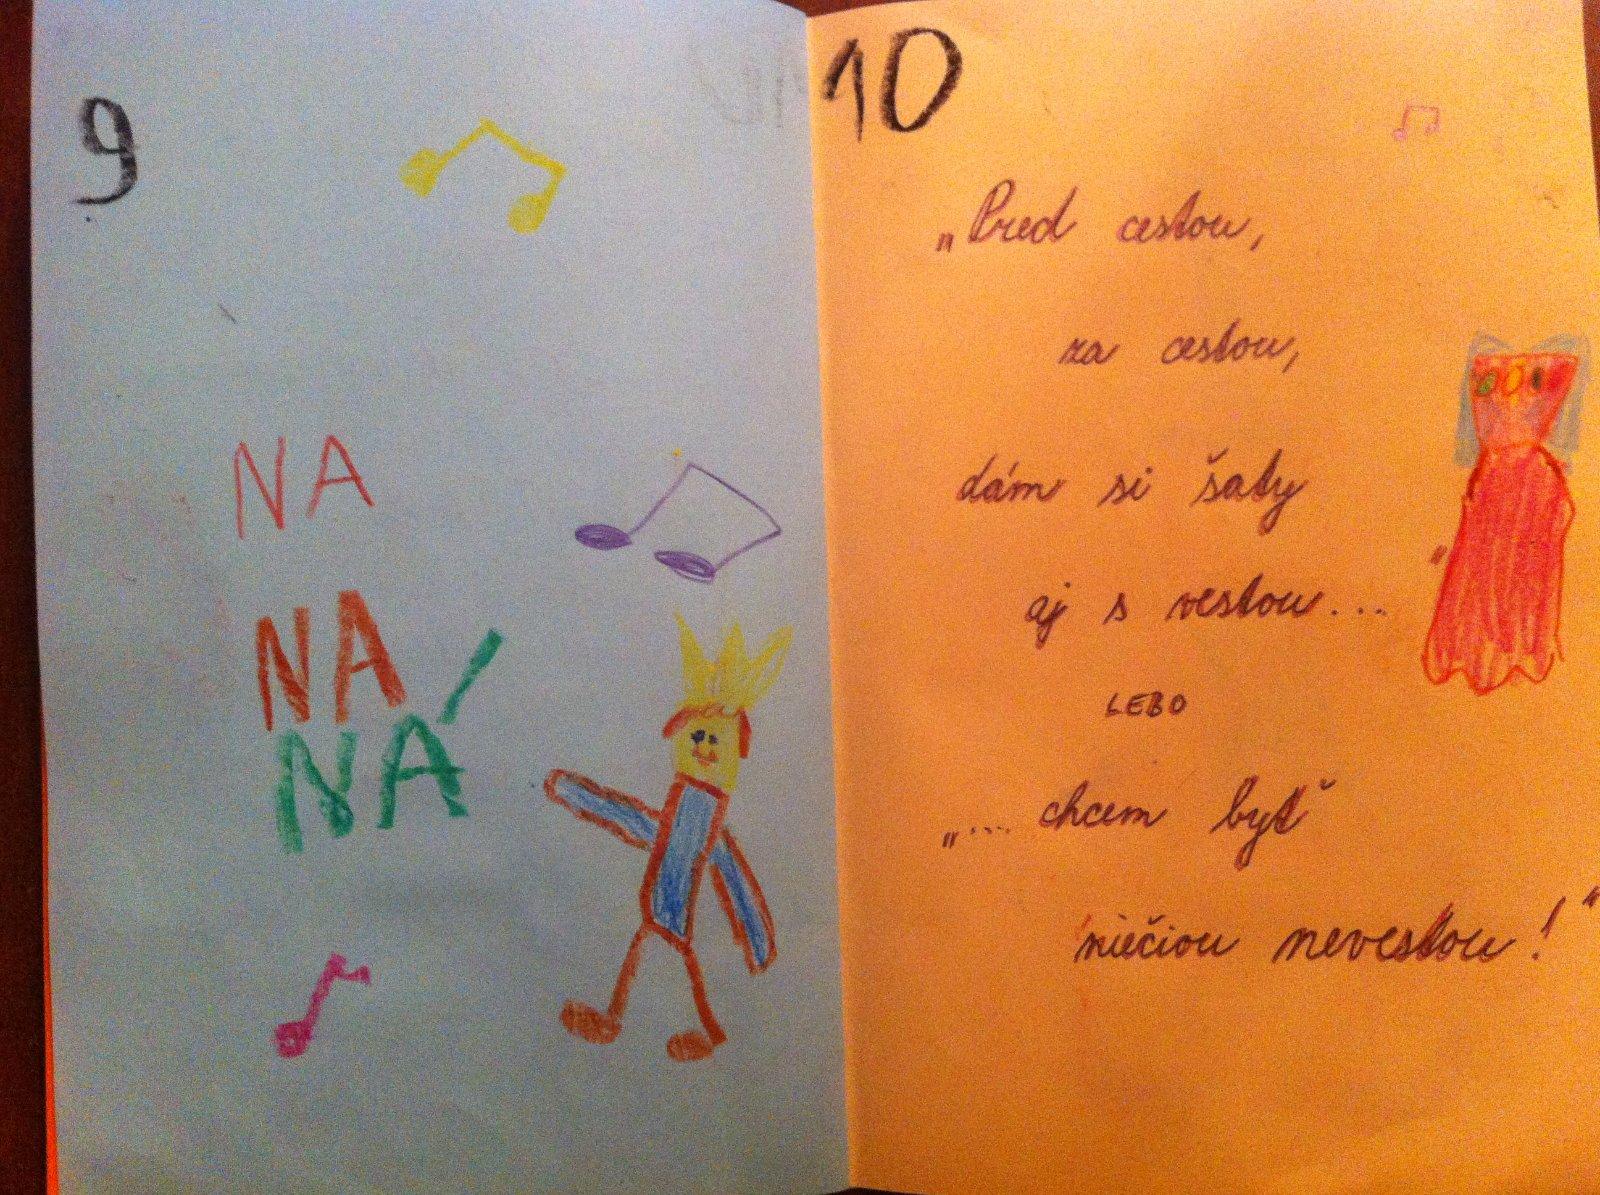 9
NA
NA
NÁ
10
„Pred cestou,
za cestou,
dám si šaty
aj s vestou...
LEBO
„.... chcem byť
niečiou nevestou!"